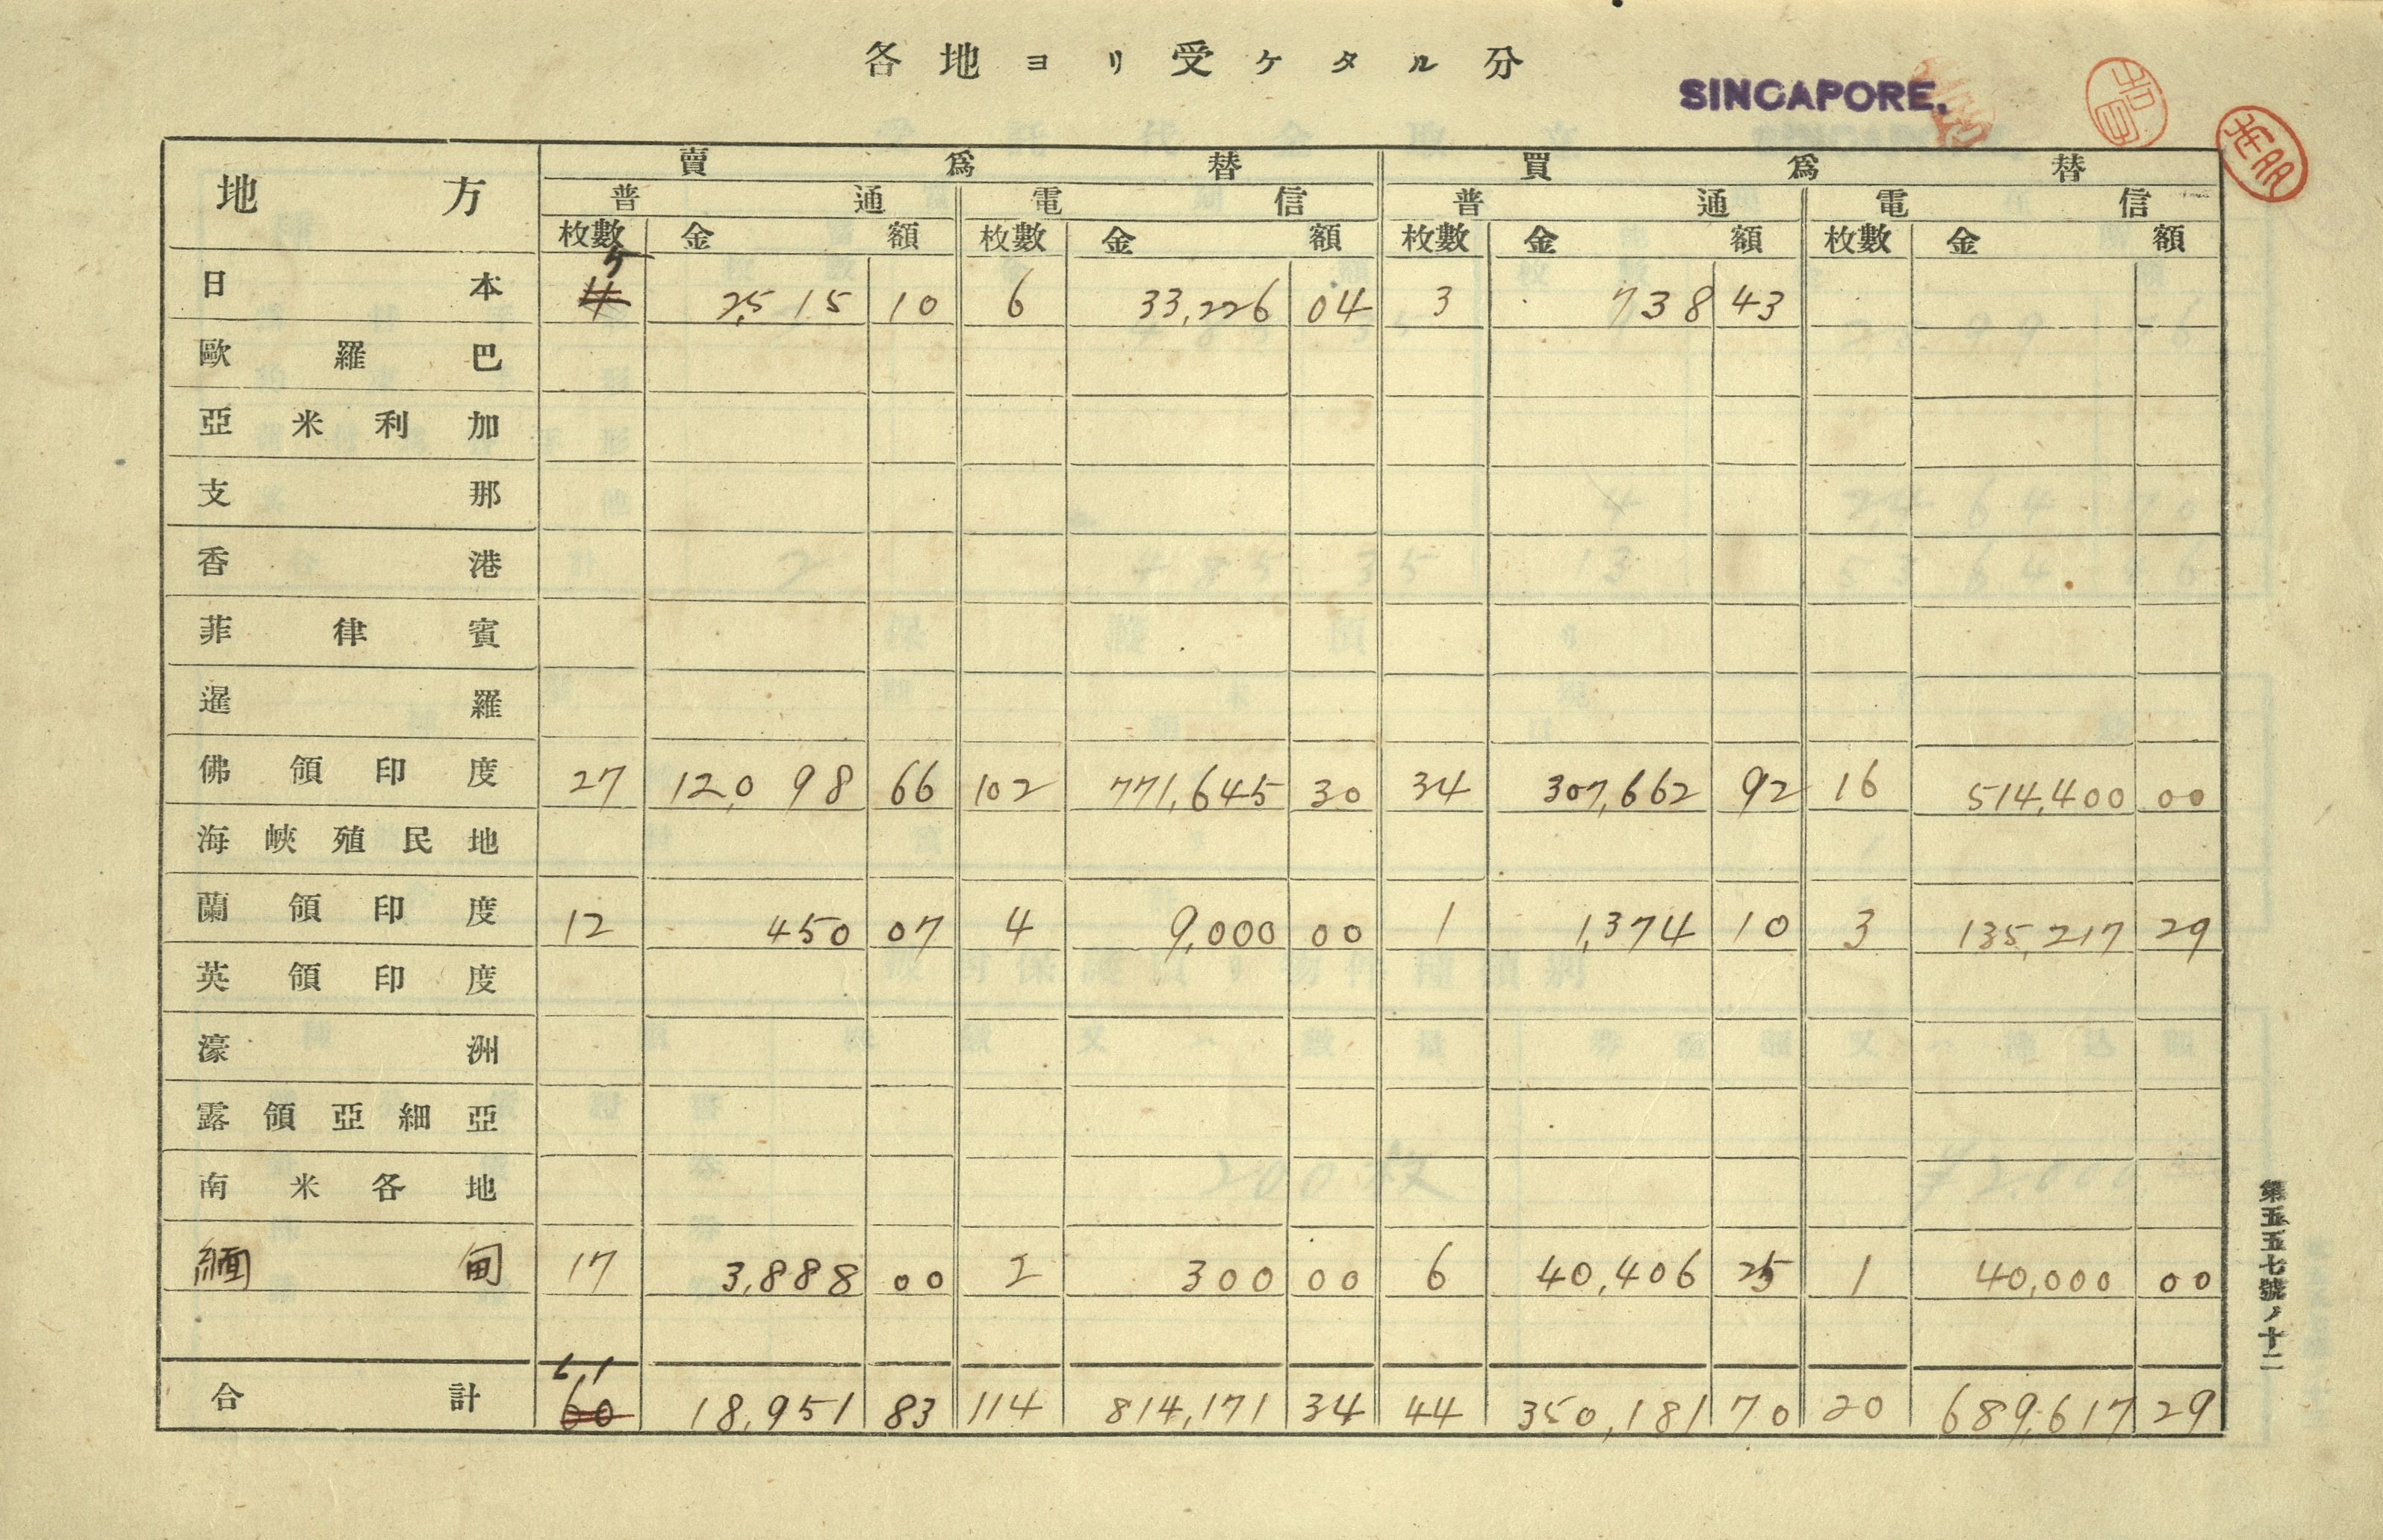 各地ヨリ受ケタル分
SINGAPORE.
地方 賣爲替 買爲替
普通 電信 普通 電信
枚數 金額 枚數 金額 枚數 金額 枚數 金額
5
日本 4 2,515 10 6 33,226 04 3 738 43
歐羅巴
亞米利加
支那
香港
菲律賓
暹羅
佛領印度 27 12,098 66 102 771,645 30 34 307,662 92 16 514,400 00
海峽殖民地
蘭領印度 12 450 07 4 9,000 00 1 1,374 10 3 135,217 29
英領印度
濠洲
露領亞細亞
南米各地
緬甸 17 3,888 00 2 300 00 6 40,406 25 1 40,000 00
61
合計 60 18,951 83 114 814,171 34 44 350,181 70 20 689,617 29
第五五七號ノ十二